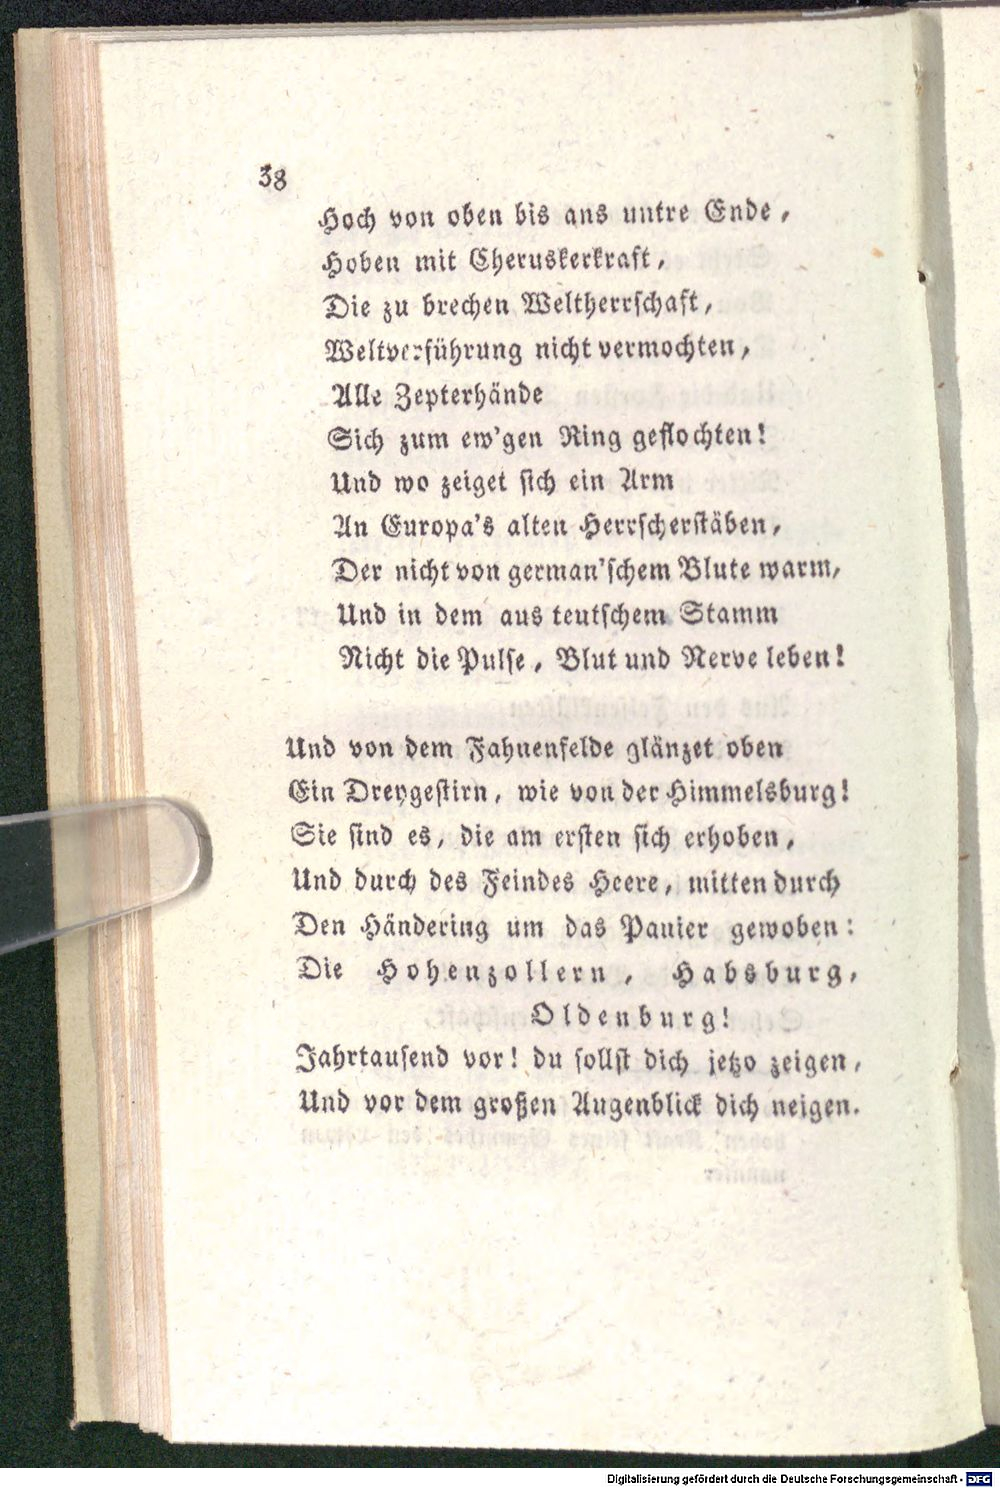 38
Hoch von oben bis ans untre Ende,
Hoben mit Cheruskerkraft,
Die zu brechen Weltherrschaft,
Weltverführung nicht vermochten,
Alle Zepterhände
Sich zum ew'gen Ring geflochten!
Und wo zeiget sich ein Arm
An Europa's alten Herrscherstäben,
Der nicht von german'schem Blute warm,
Und in dem aus teutschem Stamm
Nicht die Pulse, Blut und Nerve leben!
Und von dem Fahnenfelde glänzet oben
Ein Dreygestirn, wie von der Himmelsburg!
Sie sind es, die am ersten sich erhoben,
Und durch des Feindes Heere, mitten durch
Den Händering um das Panier gewoben:
Die Hohenzollern, Habsburg,
Oldenburg!
Jahrtausend vor! du sollst dich jetzo zeigen,
Und vor dem großen Augenblick dich neigen.
Digitalisierung gefördert durch die Deutsche Forschungsgemeinschaft - DFG